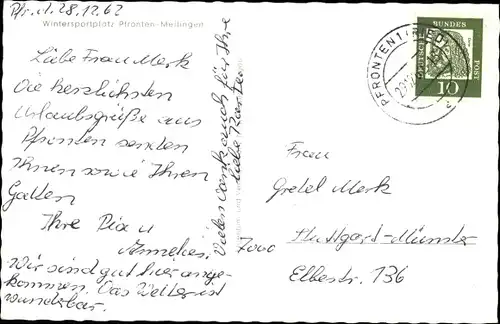 Pfr. d. 28.12.62
Wintersportplatz Pfronten-Meilingen
Liebe Frau Merk
Die herzlichsten
Urlaubsgrüße aus
Pfronten senden
Ihnen sowie Ihrem
Gatten
Ihre Pia u
Annelies.
Wir sind gut hier ange-
kommen. Das Wetter ist
wunderbar.
Vielen Dank auch für Ihre
liebe Karte
PFRONTEN 1 (RIED)
DEUTSCHE BUNDES POST
10
Frau
Gretel Merk
7000 Stuttgart-Münster
Elbestr. 136